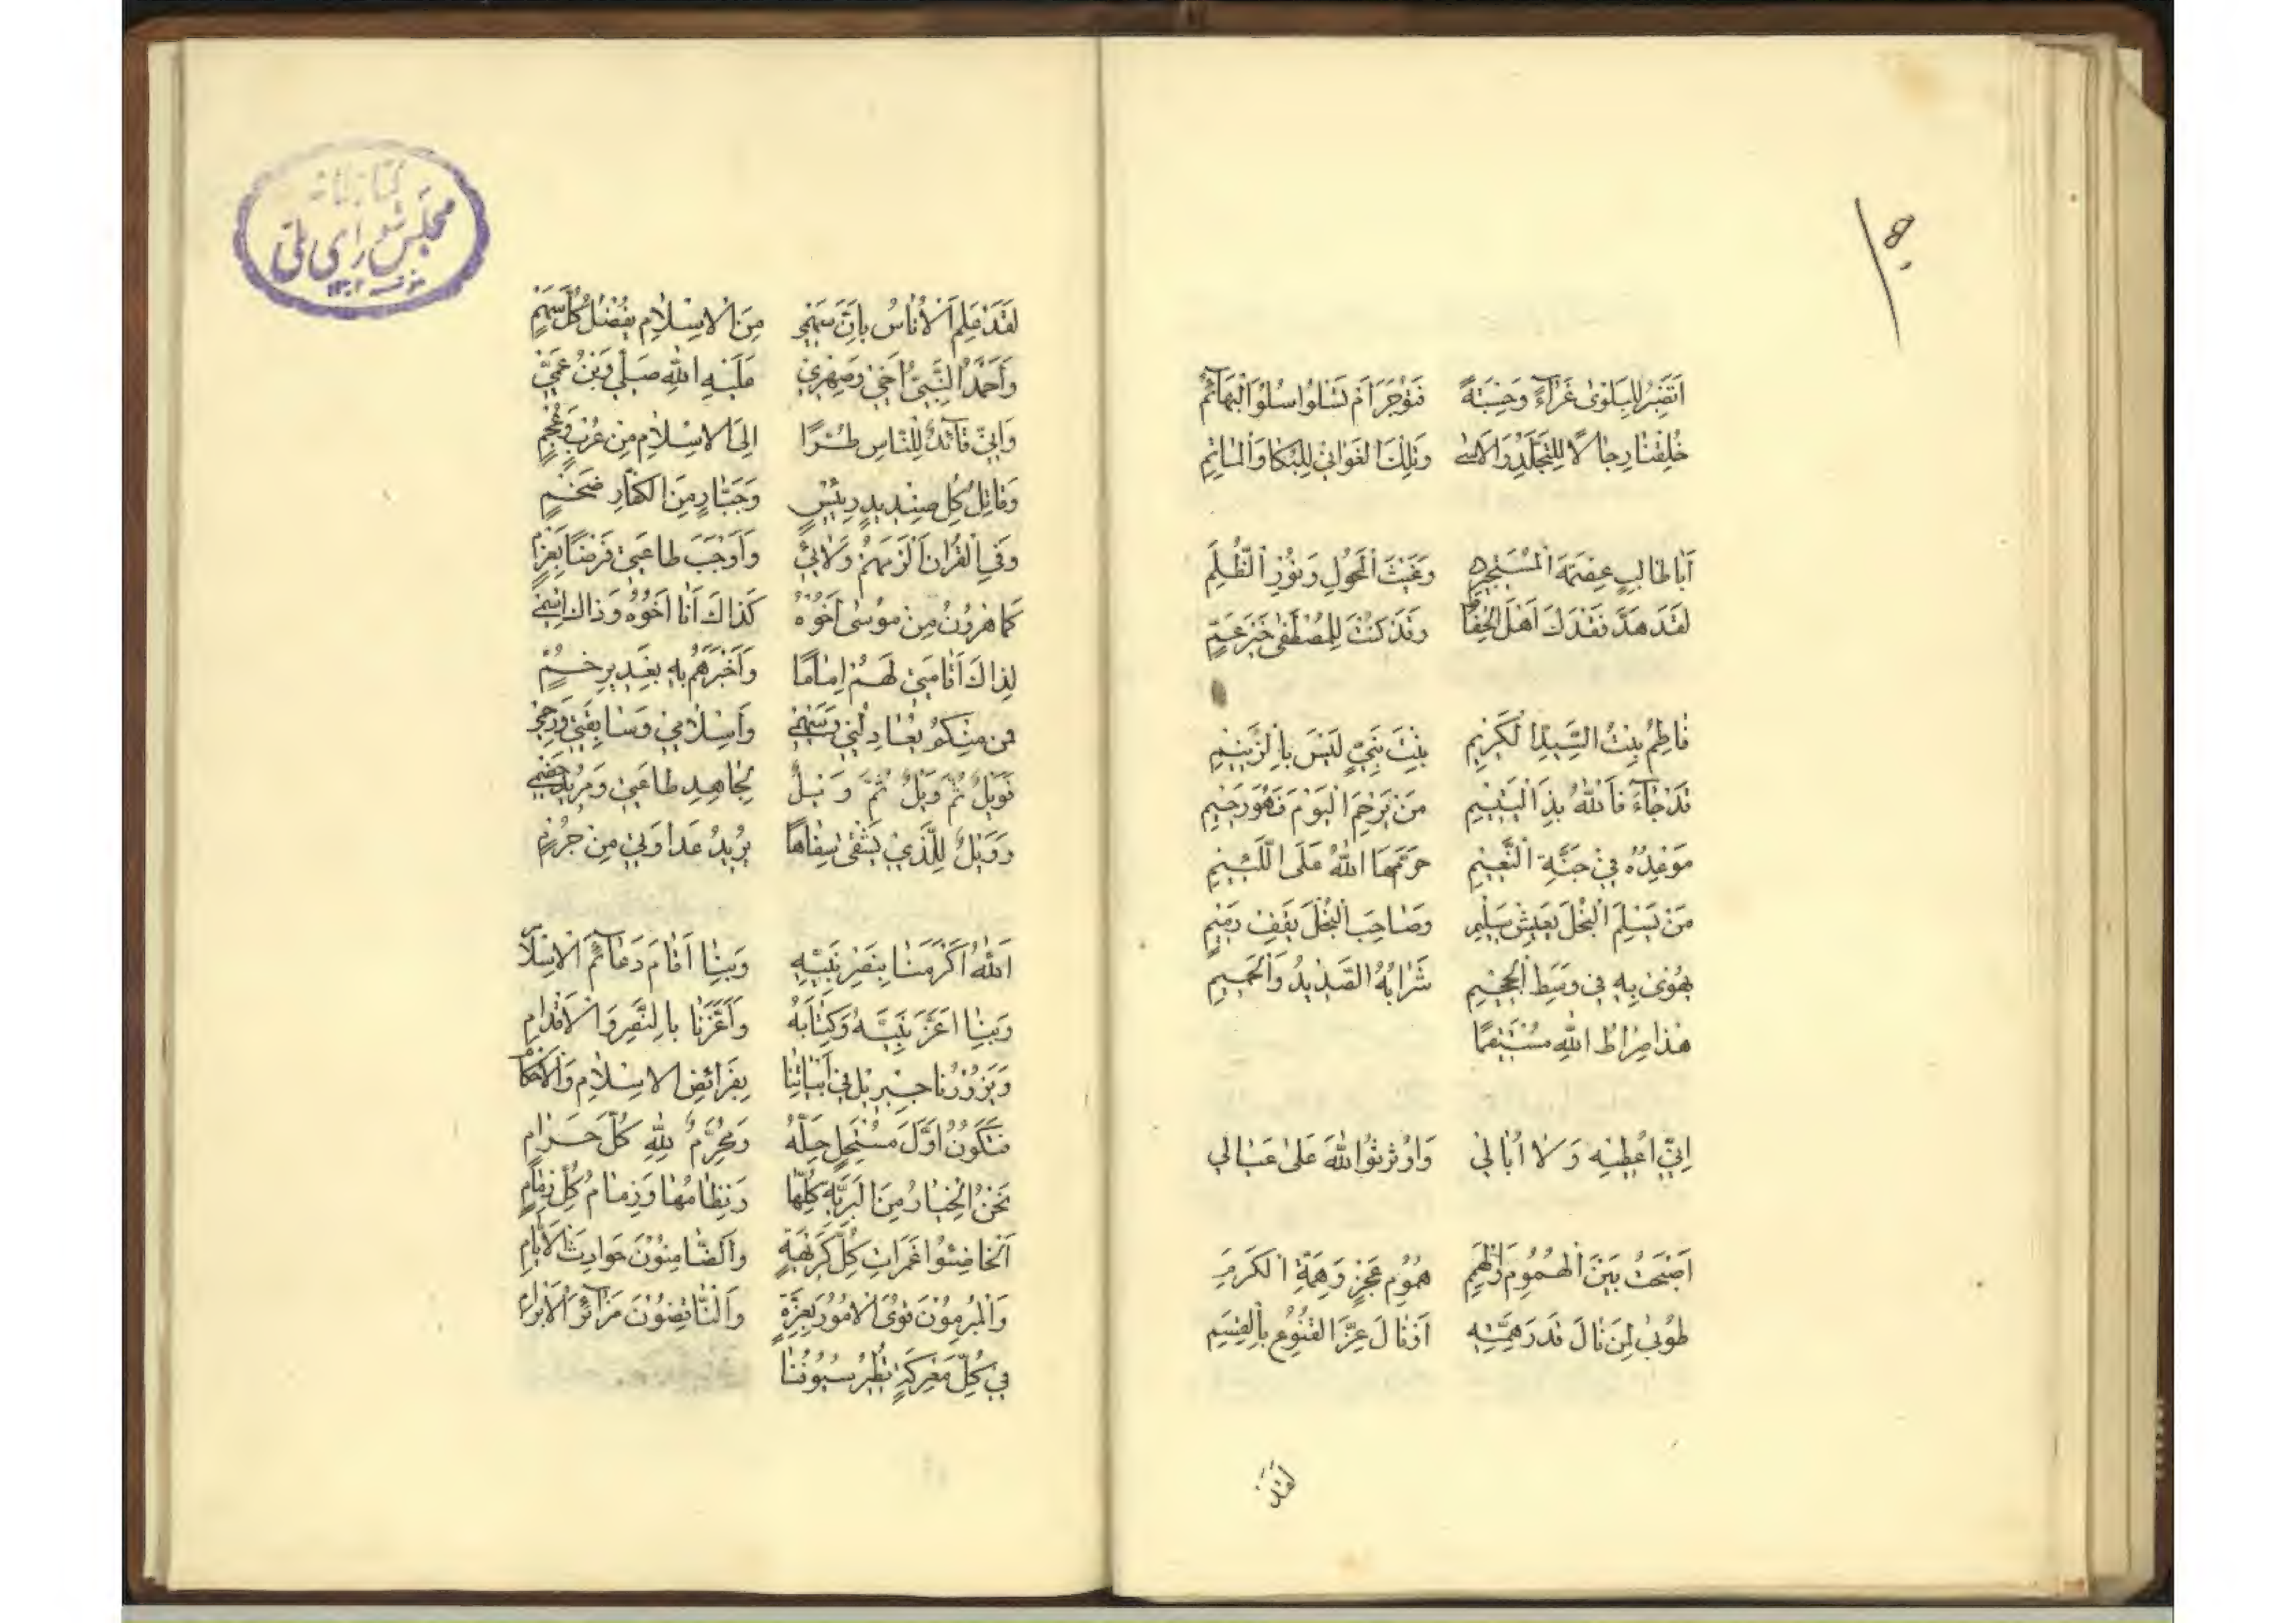 اَتَصْبِرُ لِلْبَلْوىٰ عَزٰآءً وَحِسْبَةً فَتُؤْجَرَ اَمْ تَسْلُوا سُلُوَّ الْبَهٰآئِمُ
خُلِقْنٰا رِجٰالًا لِلتَّجَلُّدِ وَالْاَسىٰ وَتِلْكَ الْغَوٰانِيْ لِلْبُكٰا وَالْمٰاتِمِ
اَبٰا طٰالِبٍ عِصْمَةَ الْمُسْتَجِيْرِ وَغَيْثَ الْمَحُوْلِ وَنُوْرَ الْظُّلَمِ
لَقَدْ هَدَّ فَقْدُكَ اَهْلَ الْحِفٰاظِ وَقَدْ كُنْتَ لِلْمُصْطَفىٰ خَيْرَ عَمٍّ
فٰاطِمُ بِنْتُ السَّيِّدِ الْكَرِيْمِ بِنْتَ نَبِيٍّ لَيْسَ بِالزَّنِيْمِ
قَدْ جٰآءَنَا اللّٰهُ بِذَا الْيَتِيْمِ مَنْ يَرْحَمِ الْيَوْمَ فَهُوَ رَحِيْمِ
مَوْعِدُهُ فِيْ جَنَّةِ النَّعِيْمِ حَرَّمَهَا اللّٰهُ عَلَى الْلَئِيْمِ
مَنْ يَسْلَمِ الْبُخْلَ يَعِيْشُ سَلِيْمِ وَصٰاحِبَ الْبُخْلِ يَقِفِ ذَمِيْمِ
يَهْوِىْ بِهِ فِيْ وَسَطِ الْجَحِيْمِ شَرٰابُهُ الصَّدِيْدُ وَالْحَمِيْمِ
هٰذٰا صِرٰاطُ اللّٰهِ مُسْتَقِيْمًا
اِنِّيْ اُعْطِيْهِ وَلٰا اُبٰالِيْ وَاُوْثِرُ اللّٰهَ عَلىٰ عَيٰالِيْ
اَصْبَحْتُ بَيْنَ الْهُمُوْمِ وَالْهِمَمِ هُمُوْمِ عَجْزٍ وَهِمَّةِ الْكَرَمِ
طُوْبىٰ لِمَنْ نٰالَ قَدْرَ هِمَّتِهِ اَوْ نٰالَ عِزَّ الْقُنُوْعِ بِالْقِسَمِ
لَقَدْ
كتابخانه
مجلس شوراى ملى
لَقَدْ عَلِمَ الْاُنٰاسُ بِاَنَّ سَهْمِيْ مِنَ الْاِسْلٰامِ يَفْضُلُ كُلَّ سَهْمٍ
وَاَحْمَدُ النَّبِيُّ اَخِيْ وَصِهْرِيْ عَلَيْهِ اللّٰهُ صَلّٰى وَبْنُ عَمِّيْ
وَاِنِّيْ قٰآئِدٌ لِلنّٰاسِ طُرًّا اِلَى الْاِسْلٰامِ مِنْ عُرْبٍ وَعُجْمٍ
وَقٰاتِلُ كُلِّ صِنْدِيْدٍ رَئِيْسٍ وَجَبّٰارٍ مِنَ الْكُفّٰارِ ضَخْمٍ
وَفِي الْقُرْاٰنِ اَلْزَمَهُمْ وَلٰائِيْ وَاَوْجَبَ طٰاعَتِيْ فَرْضًا بِعَزْمٍ
كَمٰا هٰرُوْنُ مِنْ مُوْسىٰ اَخُوْهُ كَذٰاكَ اَنَا اَخُوْهُ وَذٰاكَ اِسْمِيْ
لِذٰاكَ اَقٰامَنِيْ لَهُمْ اِمٰامًا وَاَخْبَرَهُمْ بِهِ بِغَدِيْرِ خُمٍّ
فَمَنْ مِنْكُمْ يُعٰادِلُنِيْ بِسَهْمِيْ وَاِسْلٰامِيْ وَسٰابِقَتِيْ وَرَحْمِيْ
فَوَيْلٌ ثُمَّ وَيْلٌ ثُمَّ وَيْلٌ لِجٰاهِدِ طٰاعَتِيْ وَمُرِيْدِ هَضْمِيْ
وَوَيْلٌ لِلَّذِيْ يَشْقىٰ سِفٰاهًا يُرِيْدُ عَدٰاوَتِيْ مِنْ جُرْمٍ
اَللّٰهُ اَكْرَمَنٰا بِنَصْرِ نَبِيِّهِ وَبِنٰا اَقٰامَ دَعٰآئِمَ الْاِسْلٰامِ
وَبِنٰا اَعَزَّ نَبِيَّهُ وَكِتٰابَهُ وَاَعَزَّنٰا بِالنَّصْرِ وَالْاَقْدٰامِ
وَيَزُوْرُنٰا جِبْرِيْلُ فِيْ اَبْيٰاتِنٰا بِفَرٰائِضِ الْاِسْلٰامِ وَالْاَحْكٰامِ
فَنَكُوْنُ اَوَّلَ مُسْتَحِلٍّ حِلَّهُ وَمُحَرِّمٌ لِلّٰهِ كُلَّ حَرٰامِ
نَحْنُ الْخِيٰارُ مِنَ الْبَرِيَّةِ كُلِّهٰا وَنِظٰامُهٰا وَزِمٰامُ كُلِّ زِمٰامٍ
اَلْخٰائِضُوا غَمَرٰاتِ كُلِّ كَرِيْهَةٍ وَالضّٰامِنُوْنَ حَوٰادِثَ الْاَيّٰامِ
وَالْمُبْرِمُوْنَ قُوَى الْاُمُوْرِ بِعِزَّةٍ وَالنّٰاقِضُوْنَ مَرٰآئِرَ الْاِبْرٰامِ
فِيْ كُلِّ مَعْرِكَةٍ تُطِيْرُ سُيُوْفُنٰا